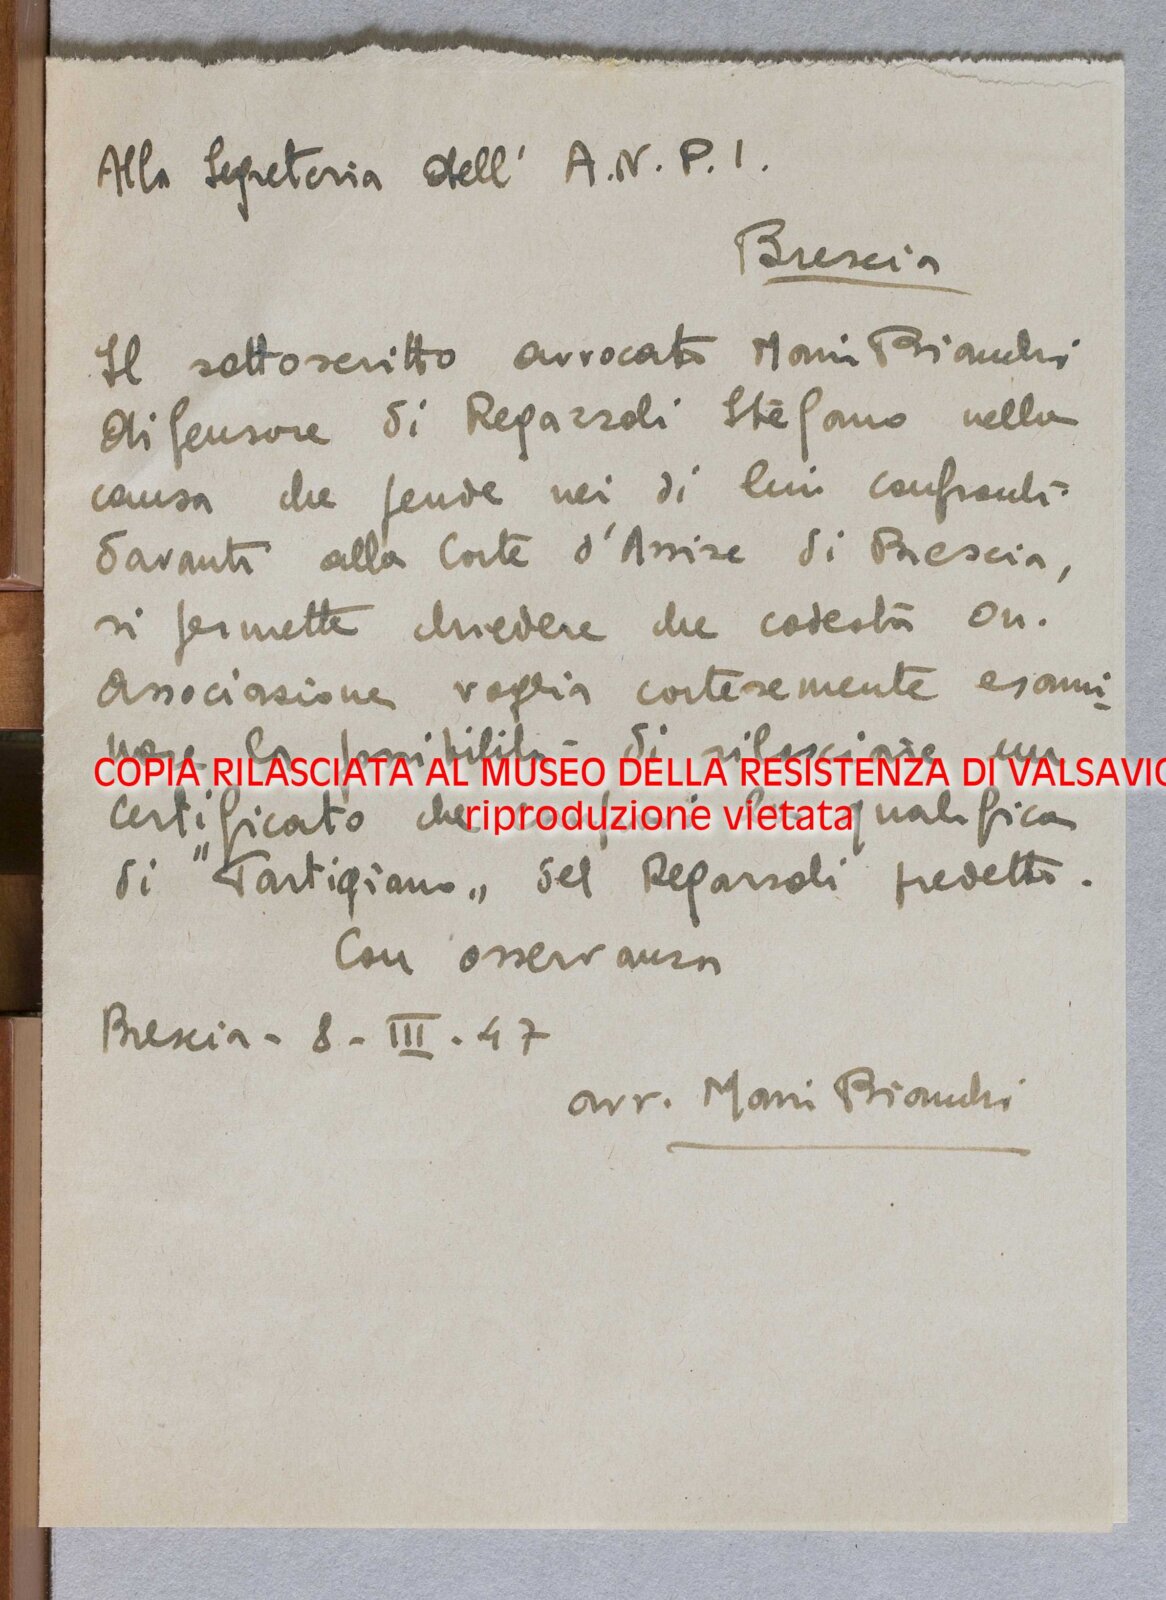 Alla Segreteria dell' A.N.P.I.
Brescia
Il sottoscritto avvocato Mario Bianchi
difensore di Regazzoli Stefano nella
causa che pende nei di lui confronti
davanti alla Corte d'Assise di Brescia,
si permette chiedere che codesta On.
Associazione voglia cortesemente esami-
nare la possibilità di rilasciare un
COPIA RILASCIATA AL MUSEO DELLA RESISTENZA DI VALSAVIO
certificato che la qualifica
riproduzione vietata
di "Partigiano„ del Regazzoli predetto.
Con osservanza
Brescia - 8 - III - 47
avv. Mario Bianchi